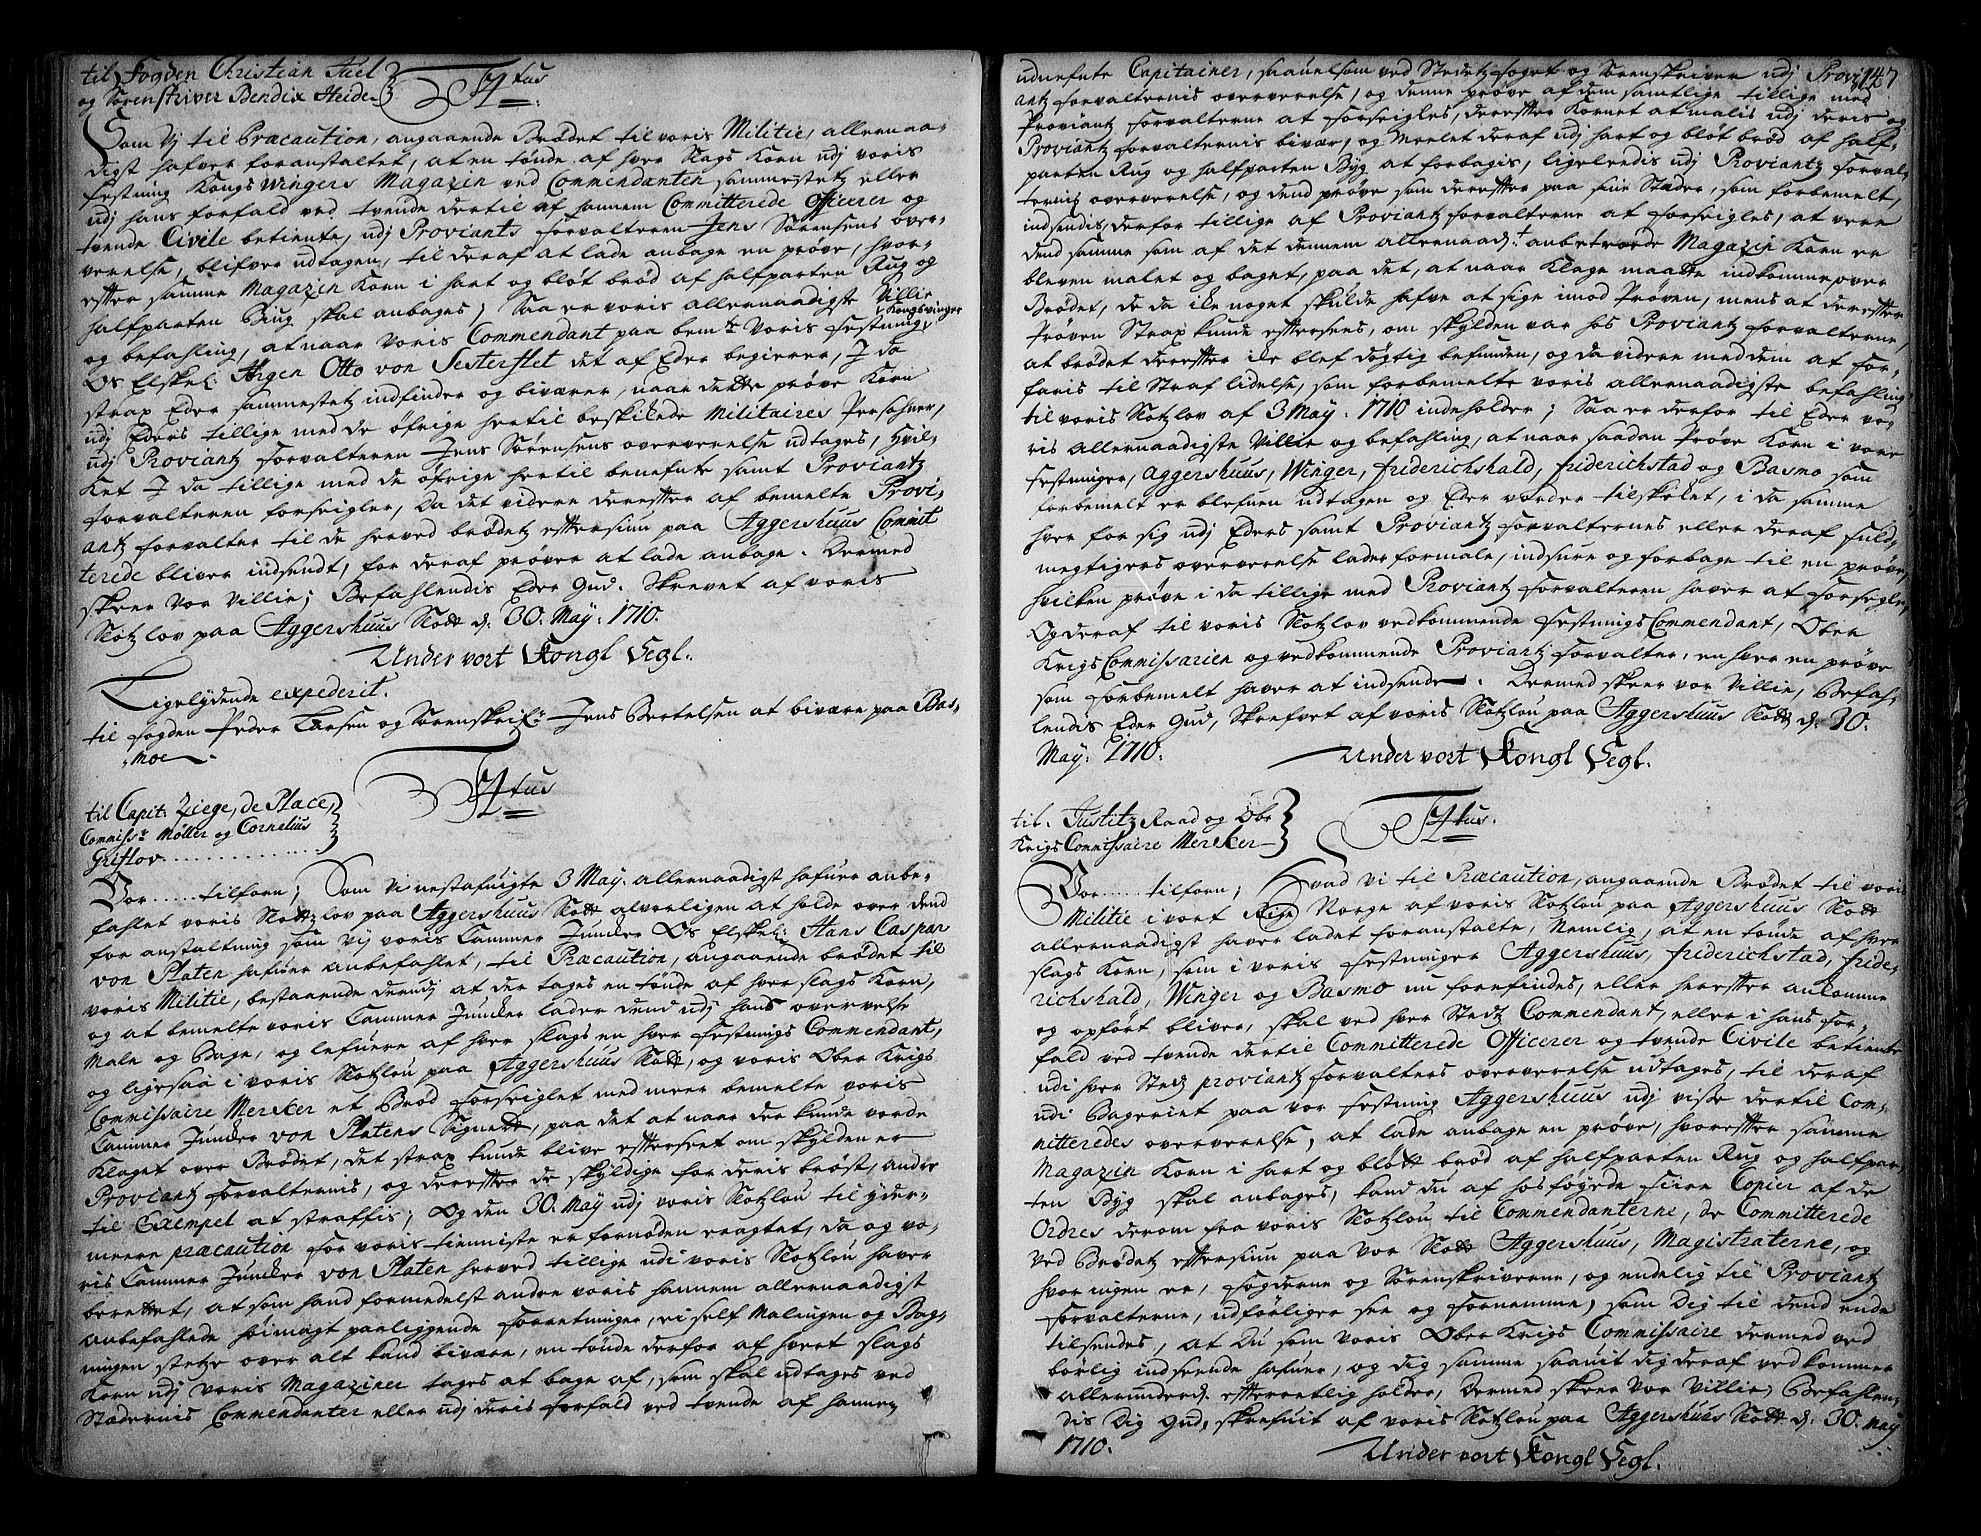 til Fogden Christian Juel
og Sorenskriver Bendix Heide
F 4tus
Som Vj til Præcaution, angaaende Brødet til voris Militie, allernaa-
digst hafver foranstaltet, at en tønde af hver Slags Korn udj voris
festning KongsWingers Magazin ved Commendanten sammestetz eller
udj hans forfald ved tvende dertil af hannem Committerede Officerer og
tvende Civile betiente, udj Proviants forvalteren Jens Sørensens over-
verelse, blifver udtagen, til deraf at lade anbage en prøve, hvor-
efter samme Magazin Korn i hart og bløt brød af halfparten Rug og
halfparten Biug skal anbages; Saa er voris allernaadigste Villie
og befahling, at naar Voris Commendant paa bemte Voris festning Kongsvinger
Os Elskel: Jørgen Otto von Sesterflet det af Eder begierer, I da
strax Eder sammestetz indfinder og biværer, naar dette prøve Korn
udj Eders tillige med de øfrige hertil beskikede Militaires Persohner,
udj Proviantz forvalteren Jens Sørensens oververelse udtages, hvil-
Ket I da tillige med de øfrige hertil benefnte samt Proviantz
forvalteren forseigler, Da det videre derefter af bemelte Provi-
antz forvalter til de herved brødetz eftersiun paa Aggershuus Commit
terede bliver indsendt, for deraf prøver at lade anbage. Dermed
skeer Vor Villie; Befahlendis Eder Gud. Skrevet af voris
Slotzlov paa Aggershuus Slott d: 30. May: 1710.
Under vort Kongl Segl.
Ligelydende expederit.
til fogden Peder Larsen og Sorenskrifr Jens Bertelsen at bivære paa Bas-
moe
F 4tus
til Capit: Ziege, de Place,
Commissr Møller og Cornelius
Griflov
Vor ..... tilforn; Som Vi nestafuigte 3 May. allernaadigst hafuer anbe-
fahlet voris Slottzlov paa Aggershuus Slott alvorligen at holde over dend
for anstaltning som vij voris Cammer Juncker Os Elskel: Hans Caspar
von Platen hafuer anbefahlet, til Præcaution, angaaende brødet til
voris Militie, bestaaende derudj at der tages en tønde af hver slags Korn,
og at bemelte voris Cammer Juncker lader dend udj hans overvelse
Male og Bage, og lefuere af hver slags en hver festnings Commendant,
og ligesaa i voris Slotzlou paa Aggershuus Slott, og voris Ober Krigs
Commissaire Mercker et Brød forseiglet med meer bemelte voris
Cammer Juncker von Platens Signett, paa det at naar der kunde vorde
Klaget over Brødet, det strax kunde blive efterseet om skylden er
Proviantz forvalternis, og derefter de skyldige for deris brøst, andre
til Exempel at straffis; Og den 30. May udj voris Slotzlou til yder-
meere præcaution for voris tienniste er fornøden eragtet, da og vo-
ris Cammer Juncker von Platen herved tillige udi voris Slotzlou haver
berettet, at som hand formedelst andre voris hannem allernaadigst
anbefahlede høivigt paaliggende forretninger, ei self Malingen og Bag-
ningen stetze over alt kand bivære, en tønde derfor af hvert slags
Korn udj voris Magaziner tages at bage af, som skal udtages ved
Stædernis Commendanter eller udj deris forfald ved tvende af hannem
147
udnefnte Capitainer, saauelsom ved Stedetz foget og Sorenskriver udj Provi-
antz forvalternis oververelse, og denne prøve af dem samtlige tillige med
Proviantz forvalterne at forseigles, derefter Kornet at malis udj deris og
Proviantz forvalternis bivær, og Meelet deraf udj hart og bløt brød af half-
parten Rug og halfparten Byg at forbagis, ligelendis udj Proviantz forval-
ternis oververelse, og dend prøve som derefter paa sine Stæder, som forbemelt,
indsendis, derfor tillige af Proviantz forvalterne at forseigles, at vere
dend samme som af det dennem allernaadt anbetroede Magazin Korn er
bleven malet og baget, paa det, at naar Klage maatte indkomme, over
Brødet, de da icke noget skulde hafve at sige imod Prøven, mens at derefter
Prøven Strax kunde eftersees, om skylden var hos Proviantz forvalterne,
at brødet derefter icke blef døgtig befunden, og da videre med dem at for-
faris til Straf lidelse, som forbemelte voris allernaadigste befahling
til voris Slotzlov af 3 May: 1710 indeholder; Saa er derfor til Eder vo-
ris Allernaadigste Villie og befahling, at naar saadan Prøve Korn i vore
festninger, Aggershuus, Winger, friderichshald, friderichstad og Basmo som
forbemelt er blefuen udtagen og Eder vorder tilskicket, i da samme
hver for sig udj Eders samt Proviantz forvalternes eller deraf fuld-
megtigers oververelse lader formale, indsure og forbage til en prøve,
hvilken prøve i da tillige med Proviantz forvalteren haver at forseigle,
Og deraf til voris Slotzlov vedkommende festnings Commendant, Ober
Krigs Commissarien og vedkommende Proviantz forvalter, en hver en prøve
som forbemelt haver at indsende. Dermed skeer vor Villie, Befah-
lendis Eder Gud, Skrefvet af voris Slotzlou paa Aggershuus Slott d: 30.
May: 1710.
Under vort Kongl Segl.
til Justitz Raad og Ober
Krigs Commissaire Mercker
F 4tus.
Vor ..... tilforn; Hvad vi til Præcaution, angaaende Brødet til voris
Militie i vort Rige Norge af voris Slotzlou paa Aggershuus Slott
allernaadigst haver ladet foranstalte, Nemlig, at en tønde af hver
slags Korn, som i voris festninger Aggershuus, friderichstad, fride-
richshald, Winger og Basmo nu forefindes, eller herefter ankomme
og opført bliver, skal ved hver Stedtz Commendant, eller i hans for-
fald ved tvende dertil Committerede Officerer og tvende Civile betiente
udi hver Stedtz proviantz forvalters oververelse udtages, til deraf
udi Bageriet paa vor festning Aggershuus udj visse dertil Com-
mitteredes oververelse, at lade anbage en prøve, hvorefter samme
Magazin Korn i hart og bløtt brød af halfparten Rug og halfpar-
ten Byg skal anbages, kand du af hosføyede fiire Copier af de
Ordres derom fra voris Slotzlou til Commendanterne, de Committerede
ved Brødetz eftersiun paa vor Slott Aggershuus, Magistraterne, og
hvor ingen er, fogderne og Sorenskriverne, og endelig til Proviantz
forvalterne, udførliger see og fornemme, som Dig til dend ende
tilsendes, at Du som voris Ober Krigs Commissaire dermed ved
børlig indseende hafuer, og dig samme saauit dig deraf vedkommer
allerunderd. efterretlig holder, Dermed skeer vor Villie, Befahlen-
dis Dig Gud, skrefuit af voris Slotzlou paa Aggershuus Slott d: 30. May
1710.
Under vort Kongl Segl.